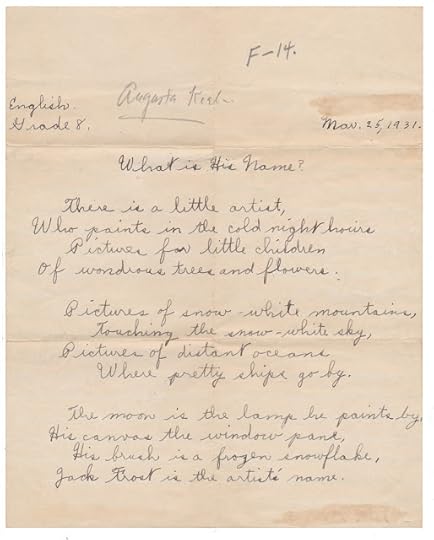 F-14.
Augusta
English.
Grade 8.
Mar. 25, 1931.
What is His Name?
There is a little artist,
Who paints in the cold night hours
Pictures for little children
Of wondrous trees and flowers.
Pictures of snow-white mountains,
Touching the snow-white sky,
Pictures of distant oceans
Where pretty ships go by.
The moon is the lamp he paints by,
His canvas the window pane,
His brush is a frozen snowflake,
Jack Frost is the artist's name.